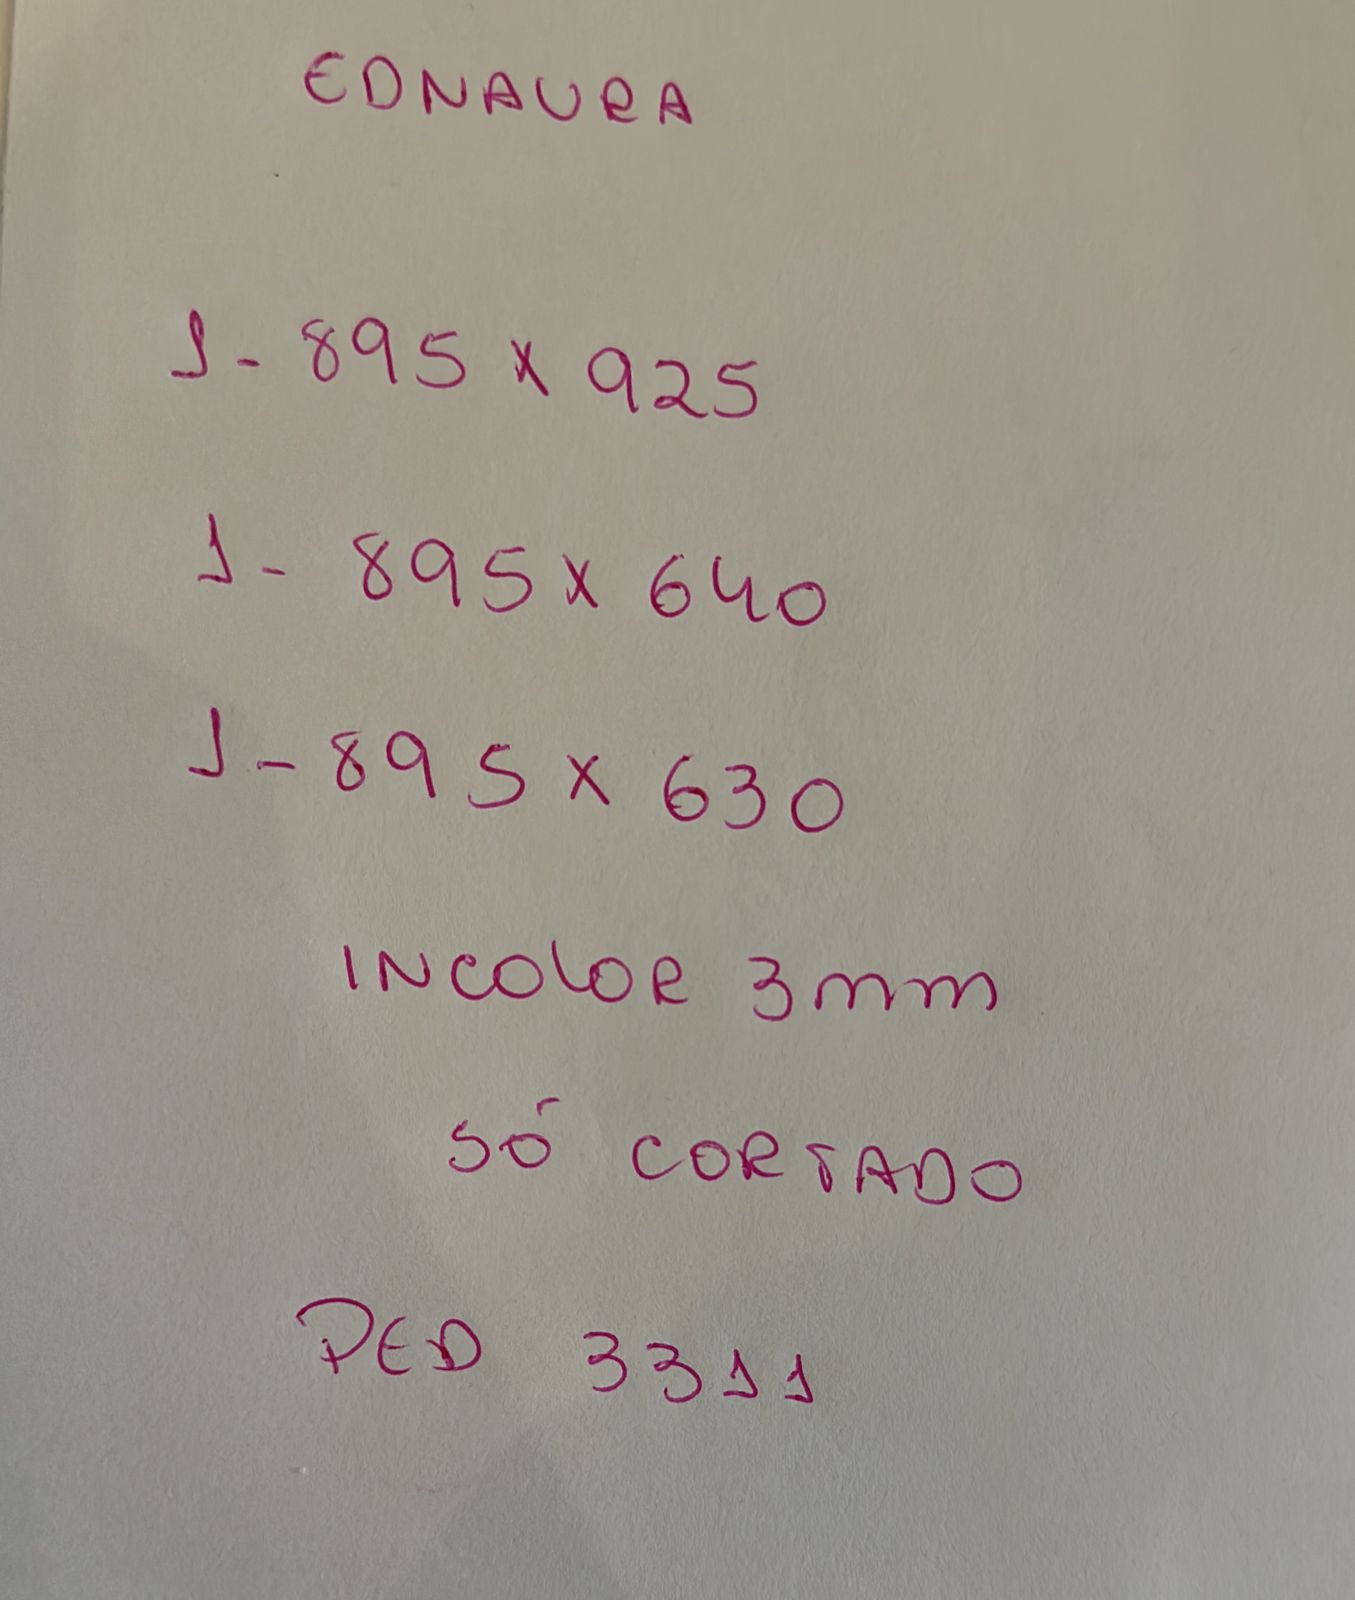 EDNAURA
1 - 895 x 925
1 - 895 x 640
1 - 895 x 630
INCOLOR 3mm
SÓ CORTADO
PED 3311